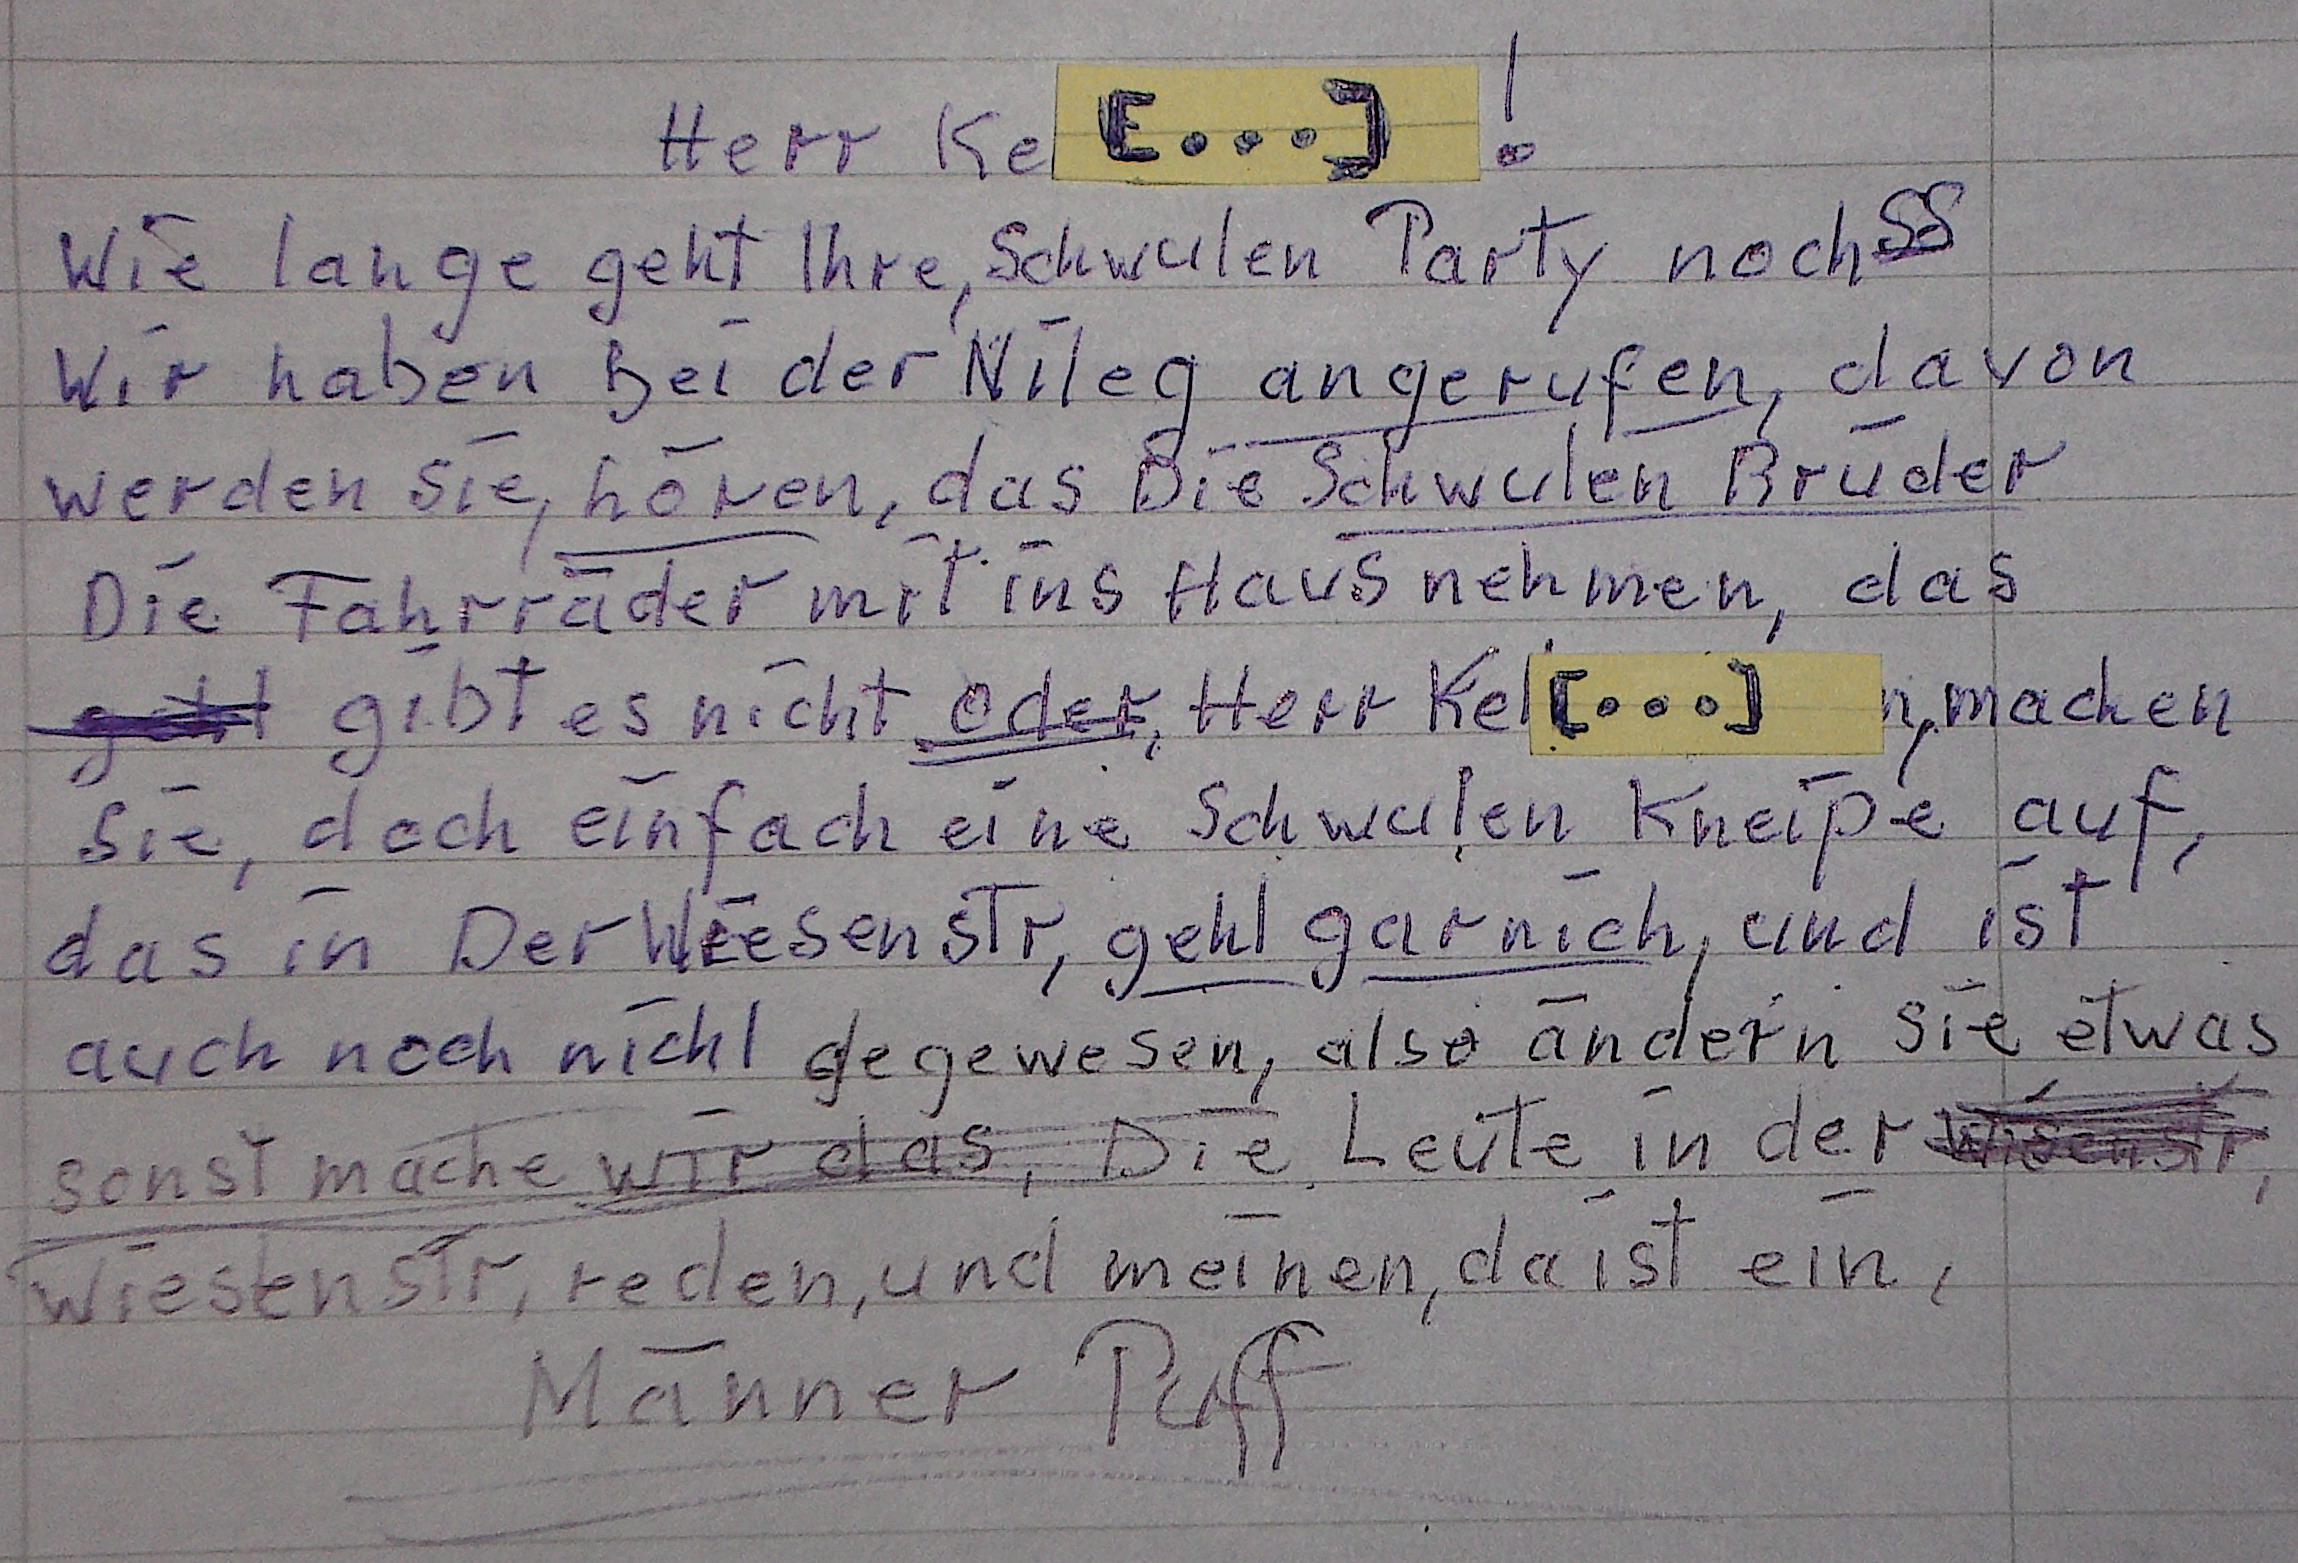 Herr Ke [...] !
Wie lange geht Ihre, Schwulen Party noch
Wir haben Bei der Nileg angerufen, davon
werden Sie, hören, das Die Schwulen Brüder
Die Fahrräder mit ins Haus nehmen, das
gibt es nicht oder, Herr Kel [...] n, machen
Sie, doch einfach eine Schwulen Kneipe auf,
das in Der Wiesenstr, gehl garnich, und ist
auch noch nichl gegewesen, also ändern Sie etwas
sonst mache wir das, Die Leute in der Wisenstr,
Wiesenstr, reden, und meinen, da ist ein,
Männer Puff